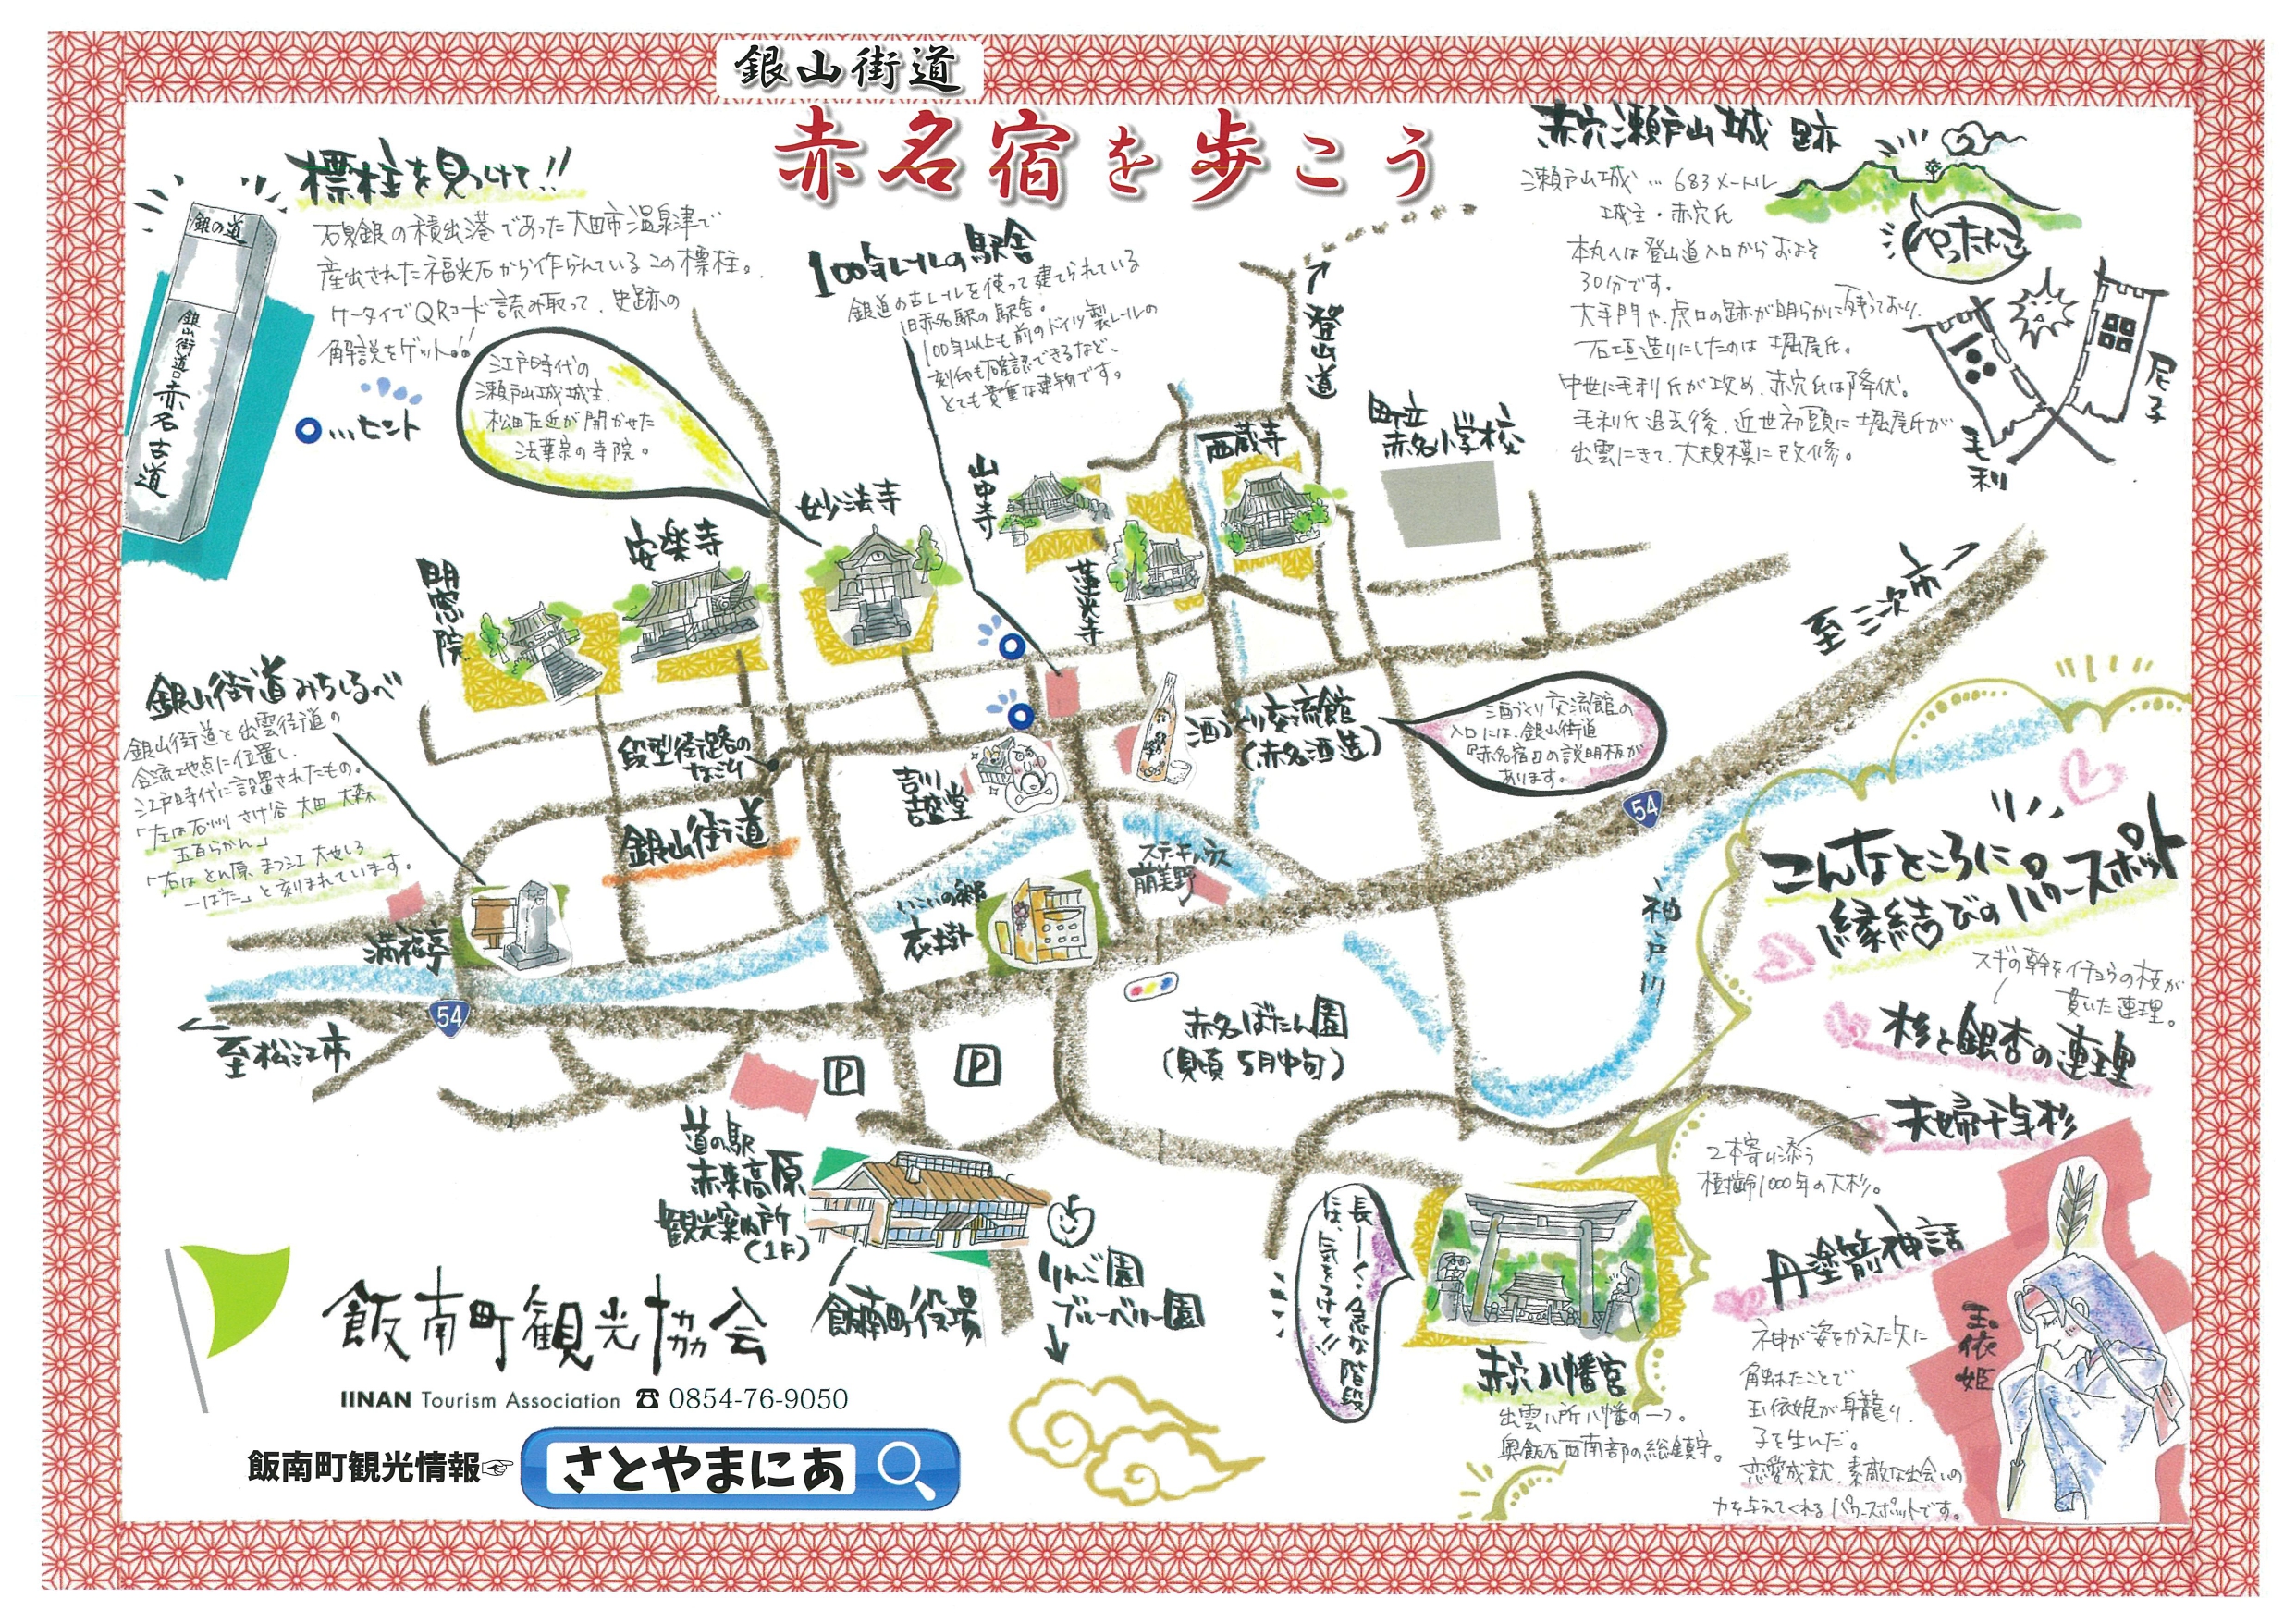 銀山街道
赤名宿を歩こう
標柱を見つけて!!
石見銀の積出港であった大田市温泉津で
産出された福光石から作られているこの標柱。
ケータイでQRコード読み取って、史跡の
解説をゲット!!
…ヒント
銀の道
銀山街道
赤名古道
江戸時代の
瀬戸山城城主、
松田左近が開かせた
法華宗の寺院。
100年レールの駅舎
銀道の古レールを使って建てられている
旧赤名駅の駅舎。
100年以上も前のドイツ製レールの
刻印も確認できるなど、
とても貴重な建物です。
赤穴瀬戸山城跡
瀬戸山城…683メートル
城主・赤穴氏
本丸へは登山道入口からおよそ
30分です。
大手門や、虎口の跡が明らかに残っており、
石垣造りにしたのは堀尾氏。
中世に毛利氏が攻め、赤穴氏は降伏。
毛利氏退去後、近世初頭に堀尾氏が
出雲にきて、大規模に改修。
尼子
毛利
登山道
町立
赤名小学校
西蔵寺
山中寺
蓮光寺
妙法寺
安楽寺
明窓院
至三次市
銀山街道みちしるべ
銀山街道と出雲街道の
合流地点に位置し、
江戸時代に設置されたもの。
「左は石州 さけ谷 大田 大森
五百らかん」
「右は とん原 まつ江 大やしろ
一ばた」と刻まれています。
段型街路の
なごり
銀山街道
吉川
吉盛堂
酒づくり交流館
(赤名酒造)
酒づくり交流館の
入口には、銀山街道
『赤名宿』の説明板が
あります。
54
ステーキハウス
萠美野
いこいの郷
衣掛
満福亭
54
至松江市
神戸川
赤名ぼたん園
(見頃 5月中旬)
P
P
道の駅
赤来高原
観光案内所
(1F)
飯南町役場
りんご園
ブルーベリー園
こんなところに
縁結びのパワースポット
スギの幹をイチョウの枝が
貫いた連理。
杉と銀杏の連理
夫婦千年杉
2本寄り添う
樹齢1000年の大杉。
丹塗箭神話
神が姿をかえた矢に
触れたことで
玉依姫が身籠り、
子を生んだ。
恋愛成就、素敵な出会いの
力を与えてくれるパワースポットです。
玉依姫
長ーく、急な階段
には、気をつけて!!
赤穴八幡宮
出雲八所八幡の一つ。
奥飯石西南部の総鎮守。
飯南町観光協会
IINAN Tourism Association ☎ 0854-76-9050
飯南町観光情報☞ さとやまにあ